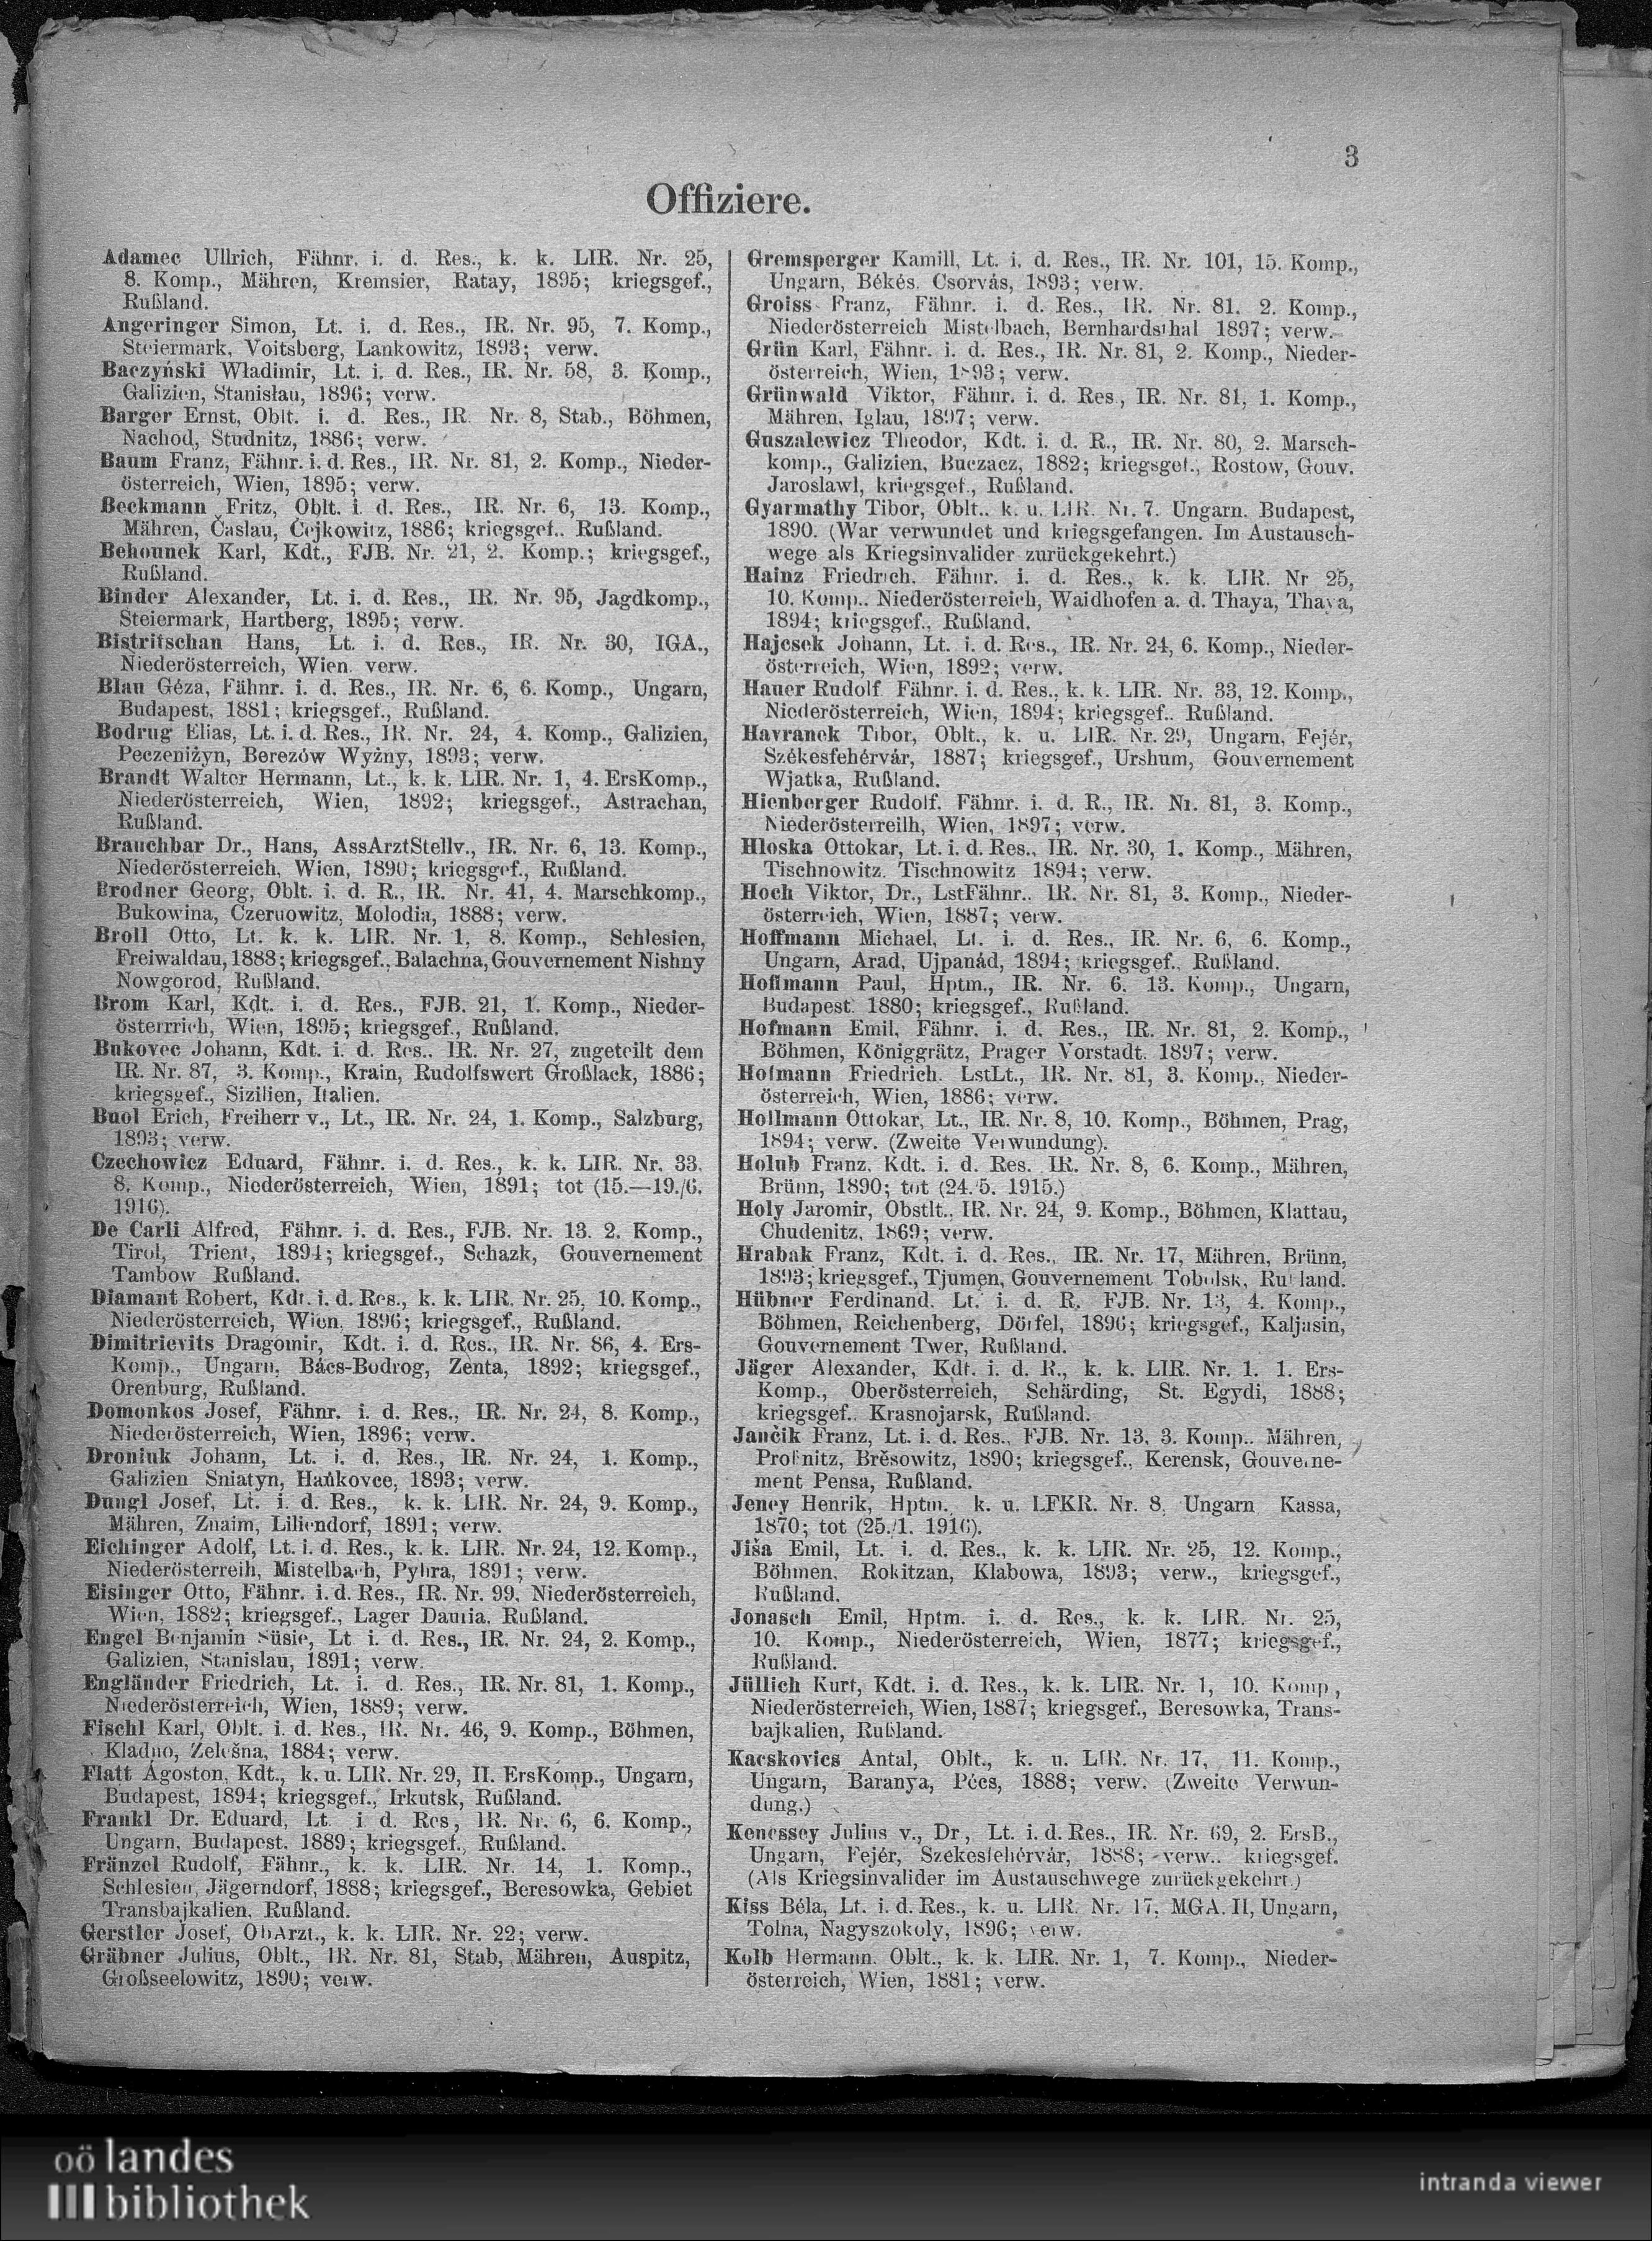 3
Offiziere.
Adamec Ullrich, Fähnr. i. d. Res., k. k. LIR. Nr. 25,
8. Komp., Mähren, Kremsier, Ratay, 1895; kriegsgef.,
Rußland.
Angeringer Simon, Lt. i. d. Res., IR. Nr. 95, 7. Komp.,
Steiermark, Voitsberg, Lankowitz, 1893; verw.
Baczyński Władimir, Lt. i. d. Res., IR. Nr. 58, 3. Komp.,
Galizien, Stanislau, 1896; verw.
Barger Ernst, Oblt. i. d. Res., IR. Nr. 8, Stab., Böhmen,
Nachod, Studnitz, 1886; verw.
Baum Franz, Fähnr. i. d. Res., IR. Nr. 81, 2. Komp., Nieder-
österreich, Wien, 1895; verw.
Beckmann Fritz, Oblt. i. d. Res., IR. Nr. 6, 13. Komp.,
Mähren, Časlau, Čejkowitz, 1886; kriegsgef.. Rußland.
Behounek Karl, Kdt., FJB. Nr. 21, 2. Komp.; kriegsgef.,
Rußland.
Binder Alexander, Lt. i. d. Res., IR. Nr. 95, Jagdkomp.,
Steiermark, Hartberg, 1895; verw.
Bistritschan Hans, Lt. i. d. Res., IR. Nr. 30, IGA.,
Niederösterreich, Wien. verw.
Blau Géza, Fähnr. i. d. Res., IR. Nr. 6, 6. Komp., Ungarn,
Budapest, 1881; kriegsgef., Rußland.
Bodrug Elias, Lt. i. d. Res., IR. Nr. 24, 4. Komp., Galizien,
Peczeniżyn, Berezów Wyżny, 1893; verw.
Brandt Walter Hermann, Lt., k. k. LIR. Nr. 1, 4. ErsKomp.,
Niederösterreich, Wien, 1892; kriegsgef., Astrachan,
Rußland.
Brauchbar Dr., Hans, AssArztStellv., IR. Nr. 6, 13. Komp.,
Niederösterreich, Wien, 1890; kriegsgef., Rußland.
Brodner Georg, Oblt. i. d. R., IR. Nr. 41, 4. Marschkomp.,
Bukowina, Czernowitz, Molodia, 1888; verw.
Broll Otto, Lt. k. k. LIR. Nr. 1, 8. Komp., Schlesien,
Freiwaldau, 1888; kriegsgef., Balachna, Gouvernement Nishny
Nowgorod, Rußland.
Brom Karl, Kdt. i. d. Res., FJB. 21, 1. Komp., Nieder-
österrrich, Wien, 1895; kriegsgef., Rußland.
Bukovec Johann, Kdt. i. d. Res.. IR. Nr. 27, zugeteilt dem
IR. Nr. 87, 3. Komp., Krain, Rudolfswert Großlack, 1886;
kriegsgef., Sizilien, Italien.
Buol Erich, Freiherr v., Lt., IR. Nr. 24, 1. Komp., Salzburg,
1893; verw.
Czechowicz Eduard, Fähnr. i. d. Res., k. k. LIR. Nr. 33.
8. Komp., Niederösterreich, Wien, 1891; tot (15.—19./6.
1916).
De Carli Alfred, Fähnr. i. d. Res., FJB. Nr. 13. 2. Komp.,
Tirol, Trient, 1894; kriegsgef., Schazk, Gouvernement
Tambow Rußland.
Diamant Robert, Kdt. i. d. Res., k. k. LIR. Nr. 25, 10. Komp.,
Niederösterreich, Wien, 1896; kriegsgef., Rußland.
Dimitrievits Dragomir, Kdt. i. d. Res., IR. Nr. 86, 4. Ers-
Komp., Ungarn, Bács-Bodrog, Zenta, 1892; kriegsgef.,
Orenburg, Rußland.
Domonkos Josef, Fähnr. i. d. Res., IR. Nr. 24, 8. Komp.,
Niederösterreich, Wien, 1896; verw.
Droniuk Johann, Lt. i. d. Res., IR. Nr. 24, 1. Komp.,
Galizien Sniatyn, Hańkovce, 1893; verw.
Dungl Josef, Lt. i. d. Res., k. k. LIR. Nr. 24, 9. Komp.,
Mähren, Znaim, Liliendorf, 1891; verw.
Eichinger Adolf, Lt. i. d. Res., k. k. LIR. Nr. 24, 12. Komp.,
Niederösterreih, Mistelbach, Pyhra, 1891; verw.
Eisinger Otto, Fähnr. i. d. Res., IR. Nr. 99, Niederösterreich,
Wien, 1882; kriegsgef., Lager Dauria. Rußland.
Engel Benjamin Süsie, Lt i. d. Res., IR. Nr. 24, 2. Komp.,
Galizien, Stanislau, 1891; verw.
Engländer Friedrich, Lt. i. d. Res., IR. Nr. 81, 1. Komp.,
Niederösterreich, Wien, 1889; verw.
Fischl Karl, Oblt. i. d. Res., IR. Nr. 46, 9. Komp., Böhmen,
Kladno, Zelešna, 1884; verw.
Flatt Ágoston, Kdt., k. u. LIR. Nr. 29, II. ErsKomp., Ungarn,
Budapest, 1894; kriegsgef., Irkutsk, Rußland.
Frankl Dr. Eduard, Lt. i d. Res, IR. Nr. 6, 6. Komp.,
Ungarn, Budapest, 1889; kriegsgef., Rußland.
Fränzel Rudolf, Fähnr., k. k. LIR. Nr. 14, 1. Komp.,
Schlesien, Jägerndorf, 1888; kriegsgef., Beresowka, Gebiet
Transbajkalien, Rußland.
Gerstler Josef, ObArzt., k. k. LIR. Nr. 22; verw.
Gräbner Julius, Oblt., IR. Nr. 81, Stab, Mähren, Auspitz,
Großseelowitz, 1890; verw.
Gremsperger Kamill, Lt. i. d. Res., IR. Nr. 101, 15. Komp.,
Ungarn, Békés, Csorvás, 1893; verw.
Groiss Franz, Fähnr. i. d. Res., IR. Nr. 81. 2. Komp.,
Niederösterreich Mistelbach, Bernhardsthal 1897; verw.
Grün Karl, Fähnr. i. d. Res., IR. Nr. 81, 2. Komp., Nieder-
österreich, Wien, 1893; verw.
Grünwald Viktor, Fähnr. i. d. Res., IR. Nr. 81, 1. Komp.,
Mähren, Iglau, 1897; verw.
Guszalewicz Theodor, Kdt. i. d. R., IR. Nr. 80, 2. Marsch-
komp., Galizien, Buczacz, 1882; kriegsgef., Rostow, Gouv.
Jaroslawl, kriegsgef., Rußland.
Gyarmathy Tibor, Oblt.. k. u. LIR. Nr. 7. Ungarn. Budapest,
1890. (War verwundet und kriegsgefangen. Im Austausch-
wege als Kriegsinvalider zurückgekehrt.)
Hainz Friedrich. Fähnr. i. d. Res., k. k. LIR. Nr 25,
10. Komp.. Niederösterreich, Waidhofen a. d. Thaya, Thaya,
1894; kriegsgef., Rußland.
Hajesek Johann, Lt. i. d. Res., IR. Nr. 24, 6. Komp., Nieder-
österreich, Wien, 1892; verw.
Hauer Rudolf Fähnr. i. d. Res., k. k. LIR. Nr. 33, 12. Komp.,
Niederösterreich, Wien, 1894; kriegsgef.. Rußland.
Havranek Tibor, Oblt., k. u. LIR. Nr. 29, Ungarn, Fejér,
Székesfehérvár, 1887; kriegsgef., Urshum, Gouvernement
Wjatka, Rußland.
Hienberger Rudolf. Fähnr. i. d. R., IR. Nr. 81, 3. Komp.,
Niederösterreilh, Wien, 1897; verw.
Hloska Ottokar, Lt. i. d. Res., IR. Nr. 30, 1. Komp., Mähren,
Tischnowitz. Tischnowitz 1894; verw.
Hoch Viktor, Dr., LstFähnr.. IR. Nr. 81, 3. Komp., Nieder-
österreich, Wien, 1887; verw.
Hoffmann Michael, Lt. i. d. Res., IR. Nr. 6, 6. Komp.,
Ungarn, Arad, Ujpanád, 1894; kriegsgef., Rußland.
Hoffmann Paul, Hptm., IR. Nr. 6. 13. Komp., Ungarn,
Budapest. 1880; kriegsgef., Rußland.
Hofmann Emil, Fähnr. i. d. Res., IR. Nr. 81, 2. Komp.,
Böhmen, Königgrätz, Prager Vorstadt. 1897; verw.
Hofmann Friedrich. LstLt., IR. Nr. 81, 3. Komp., Nieder-
österreich, Wien, 1886; verw.
Hollmann Ottokar, Lt., IR. Nr. 8, 10. Komp., Böhmen, Prag,
1894; verw. (Zweite Verwundung).
Holub Franz, Kdt. i. d. Res. IR. Nr. 8, 6. Komp., Mähren,
Brünn, 1890; tot (24./5. 1915.)
Holy Jaromir, Obstlt., IR. Nr. 24, 9. Komp., Böhmen, Klattau,
Chudenitz, 1869; verw.
Hrabak Franz, Kdt. i. d. Res., IR. Nr. 17, Mähren, Brünn,
1893; kriegsgef., Tjumen, Gouvernement Tobolsk, Rußland.
Hübner Ferdinand. Lt. i. d. R. FJB. Nr. 13, 4. Komp.,
Böhmen, Reichenberg, Dörfel, 1896; kriegsgef., Kaljasin,
Gouvernement Twer, Rußland.
Jäger Alexander, Kdt. i. d. R., k. k. LIR. Nr. 1. 1. Ers-
Komp., Oberösterreich, Schärding, St. Egydi, 1888;
kriegsgef.. Krasnojarsk, Rußland.
Jančik Franz, Lt. i. d. Res., FJB. Nr. 13, 3. Komp.. Mähren,
Proßnitz, Břesowitz, 1890; kriegsgef., Kerensk, Gouverne-
ment Pensa, Rußland.
Jeney Henrik, Hptm. k. u. LFKR. Nr. 8, Ungarn Kassa,
1870; tot (25./1. 1916).
Jiša Emil, Lt. i. d. Res., k. k. LIR. Nr. 25, 12. Komp.,
Böhmen, Rokitzan, Klabowa, 1893; verw., kriegsgef.,
Rußland.
Jonasch Emil, Hptm. i. d. Res., k. k. LIR. Nr. 25,
10. Komp., Niederösterreich, Wien, 1877; kriegsgef.,
Rußland.
Jüllich Kurt, Kdt. i. d. Res., k. k. LIR. Nr. 1, 10. Komp,
Niederösterreich, Wien, 1887; kriegsgef., Beresowka, Trans-
bajkalien, Rußland.
Kacskovics Antal, Oblt., k. u. LIR. Nr. 17, 11. Komp.,
Ungarn, Baranya, Pécs, 1888; verw. (Zweite Verwun-
dung.)
Kenessey Julius v., Dr, Lt. i. d. Res., IR. Nr. 69, 2. ErsB.,
Ungarn, Fejér, Székesfehérvár, 1888; verw.. kriegsgef.
(Als Kriegsinvalider im Austauschwege zurückgekehrt.)
Kiss Béla, Lt. i. d. Res., k. u. LIR. Nr. 17, MGA. II, Ungarn,
Tolna, Nagyszokoly, 1896; verw.
Kolb Hermann. Oblt., k. k. LIR. Nr. 1, 7. Komp., Nieder-
österreich, Wien, 1881; verw.
oö landes
bibliothek
intranda viewer